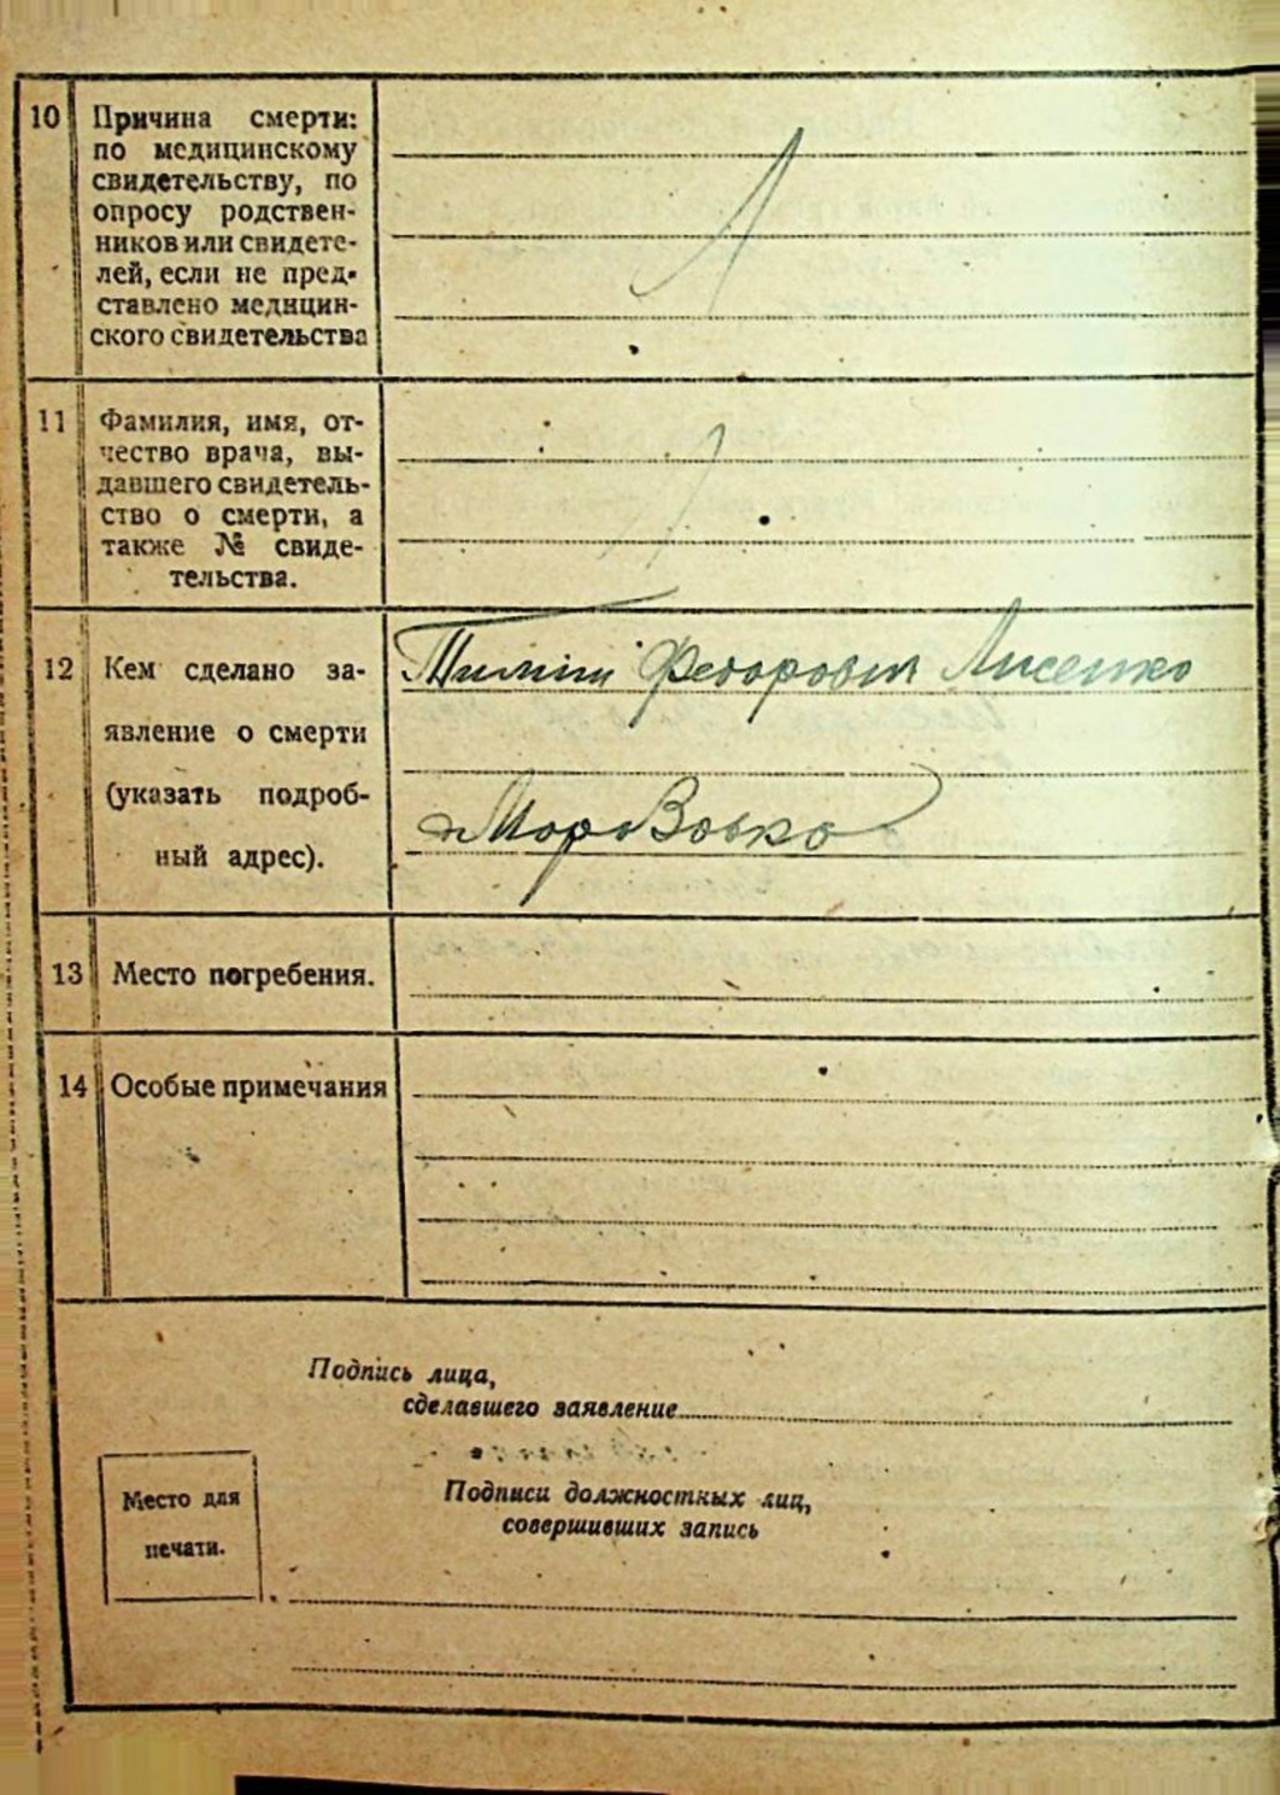 10 Причина смерти:
по медицинскому
свидетельству, по
опросу родствен-
ников или свидете-
лей, если не пред-
ставлено медицин-
ского свидетельства
11 Фамилия, имя, от-
чество врача, вы-
давшего свидетель-
ство о смерти, а
также № свиде-
тельства.
12 Кем сделано за-
явление о смерти
(указать подроб-
ный адрес).
Федорович Лисенко
13 Место погребения.
14 Особые примечания
Подпись лица,
сделавшего заявление
Подписи должностных лиц,
совершивших запись
Место для
печати.